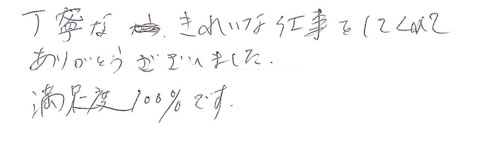 丁寧な きれいな仕事をしてくれて
ありがとうございました.
満足度100%です.